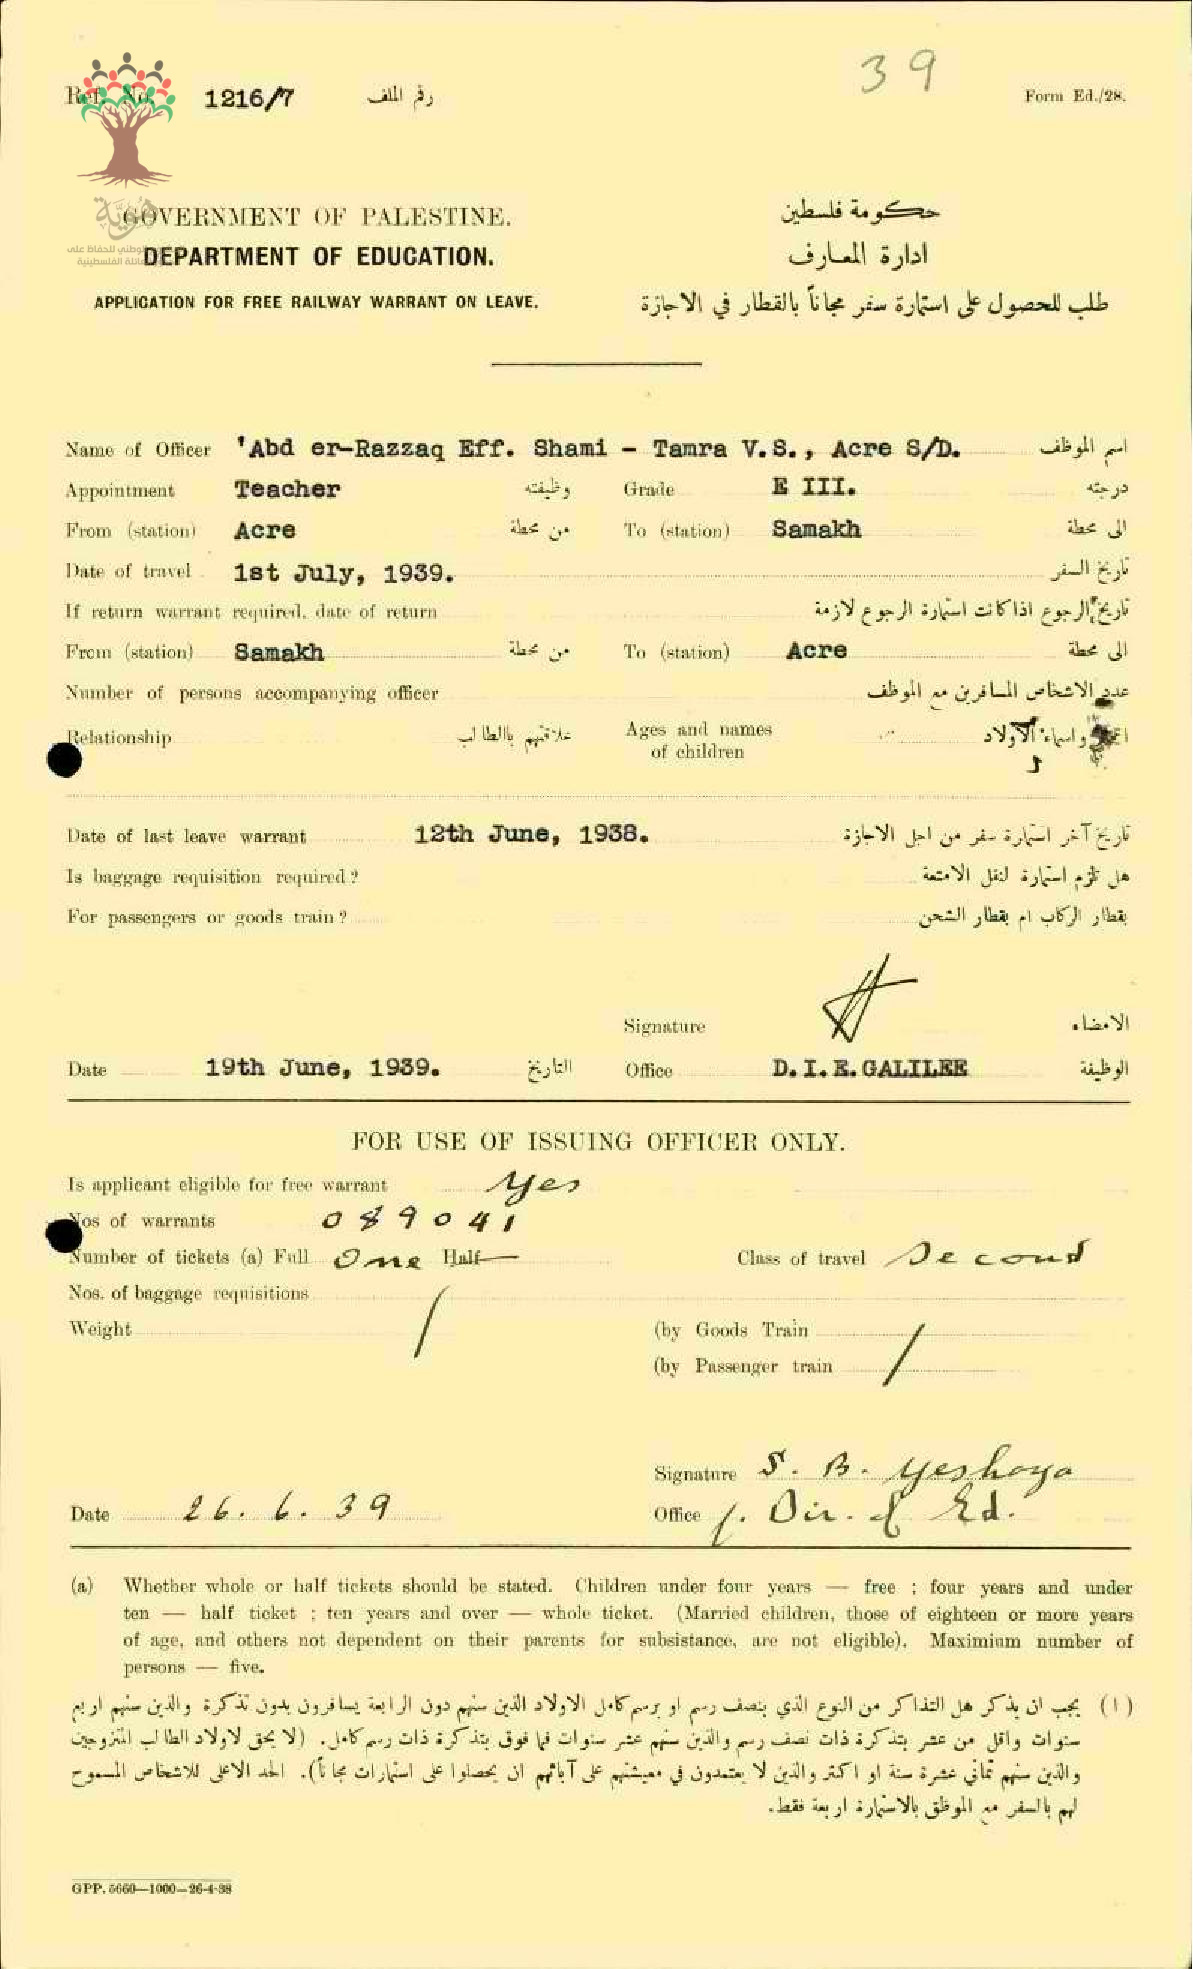 39
Ref. No. 1216/7 رقم الملف
Form Ed./28.
هوية
GOVERNMENT OF PALESTINE. حكومة فلسطين
DEPARTMENT OF EDUCATION. ادارة المعارف
APPLICATION FOR FREE RAILWAY WARRANT ON LEAVE. طلب للحصول على استمارة سفر مجاناً بالقطار في الاجازة
Name of Officer 'Abd er-Razzaq Eff. Shami - Tamra V.S., Acre S/D. اسم الموظف
Appointment Teacher وظيفته Grade E III. درجته
From (station) Acre من محطة To (station) Samakh الى محطة
Date of travel 1st July, 1939. تاريخ السفر
If return warrant required, date of return تاريخ الرجوع اذا كانت استمارة الرجوع لازمة
From (station) Samakh من محطة To (station) Acre الى محطة
Number of persons accompanying officer عدد الاشخاص المسافرين مع الموظف
Relationship علاقتهم بالطالب Ages and names واسماء الاولاد
of children
Date of last leave warrant 12th June, 1938. تاريخ آخر استمارة سفر من اجل الاجازة
Is baggage requisition required? هل تلزم استمارة لنقل الامتعة
For passengers or goods train? بقطار الركاب ام بقطار الشحن
Signature الامضاء
Date 19th June, 1939. التاريخ Office D.I.E.GALILEE الوظيفة
FOR USE OF ISSUING OFFICER ONLY.
Is applicant eligible for free warrant yes
Nos of warrants 089041
Number of tickets (a) Full One Half — Class of travel Second
Nos. of baggage requisitions
Weight (by Goods Train
(by Passenger train
Signature S. B. Yeshaya
Date 26. 6. 39 Office f. Dir. of Ed.
(a) Whether whole or half tickets should be stated. Children under four years — free ; four years and under
ten — half ticket ; ten years and over — whole ticket. (Married children, those of eighteen or more years
of age, and others not dependent on their parents for subsistance, are not eligible). Maximium number of
persons — five.
(١) يجب ان يذكر هل التذاكر من النوع الذي بنصف رسم او برسم كامل الاولاد الذين سنهم دون الرابعة يسافرون بدون تذكرة والذين سنهم اربع
سنوات واقل من عشر بتذكرة ذات نصف رسم والذين سنهم عشر سنوات فما فوق بتذكرة ذات رسم كامل. (لا يحق لاولاد الطالب المتزوجين
والذين سنهم ثماني عشرة سنة او اكثر والذين لا يعتمدون في معيشتهم على آبائهم ان يحصلوا على استمارات مجاناً). الحد الاعلى للاشخاص المسموح
لهم بالسفر مع الموظف بالاستمارة اربعة فقط.
GPP. 5660—1000—26-4-38